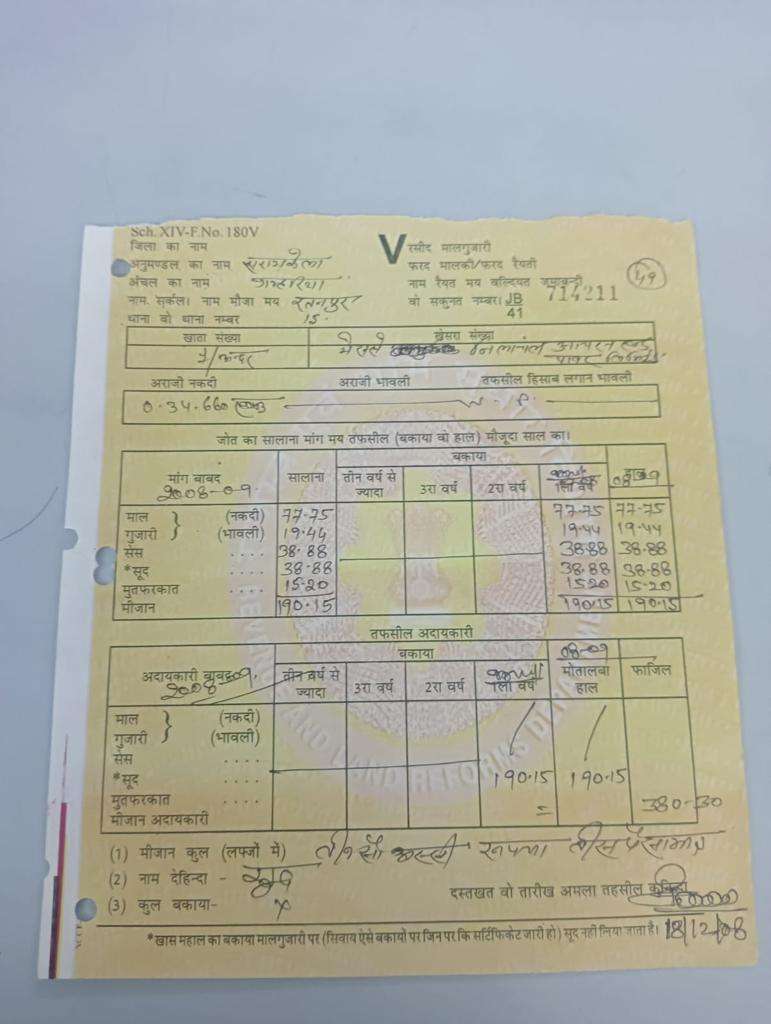 Sch. XIV-F.No. 180V
जिला का नाम
V रसीद मालगुजारी
अनुमण्डल का नाम सरायकेला
फरद मालकी/फरद रैयती
49
अंचल का नाम गम्हरिया
नाम रैयत मय वल्दियत जमाबन्दी
नाम. सर्कल। नाम मौजा मय रतनपुर
वो सकुनत नम्बर। JB 41 714211
थाना वो थाना नम्बर 15.
खाता संख्या खेसरा संख्या
मेसर्स
अराजी नकदी अराजी भावली तफसील हिसाब लगान भावली
0.34.660
जोत का सालाना मांग मय तफ़सील (बकाया वो हाल) मौजूदा साल का।
मांग बाबद सालाना बकाया
2008-09. तीन वर्ष से ज्यादा 3रा वर्ष 2रा वर्ष 1ला वर्ष हाल 08-09
माल (नकदी) 77-75 77-75 77-75
गुजारी (भावली) 19.44 19.44 19.44
सेस .... 38.88 38.88 38.88
*सूद .... 38.88 38.88 38.88
मुतफरकात .... 15-20 15-20 15-20
मीजान 190.15 190.15 190.15
तफसील अदायकारी
बकाया 08-09
अदायकारी बाबद तीन वर्ष से ज्यादा 3रा वर्ष 2रा वर्ष 1ला वर्ष मोतालबा हाल फाजिल
माल (नकदी)
गुजारी (भावली)
सेस ....
*सूद .... 190.15 190.15
मुतफरकात .... = 380-30
मीजान अदायकारी
(1) मीजान कुल (लफ्जों में) तीन सौ अस्सी रूपया तीस पैसा मात्र
(2) नाम देहिन्दा - खुद
दस्तखत वो तारीख अमला तहसील कुनिन्दा
(3) कुल बकाया- x
18/12/08
*खास महाल का बकाया मालगुजारी पर (सिवाय ऐसे बकायों पर जिन पर कि सर्टिफिकेट जारी हो) सूद नहीं लिया जाता है।